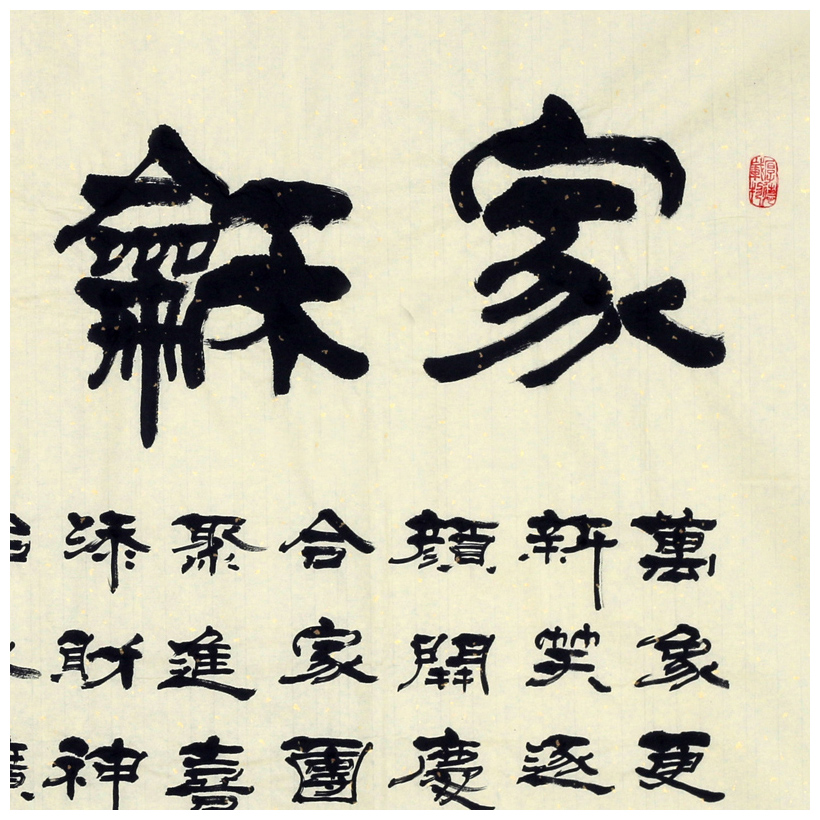 家龢
萬象更
新笑逐
顔開慶
合家團
聚進喜
添財神